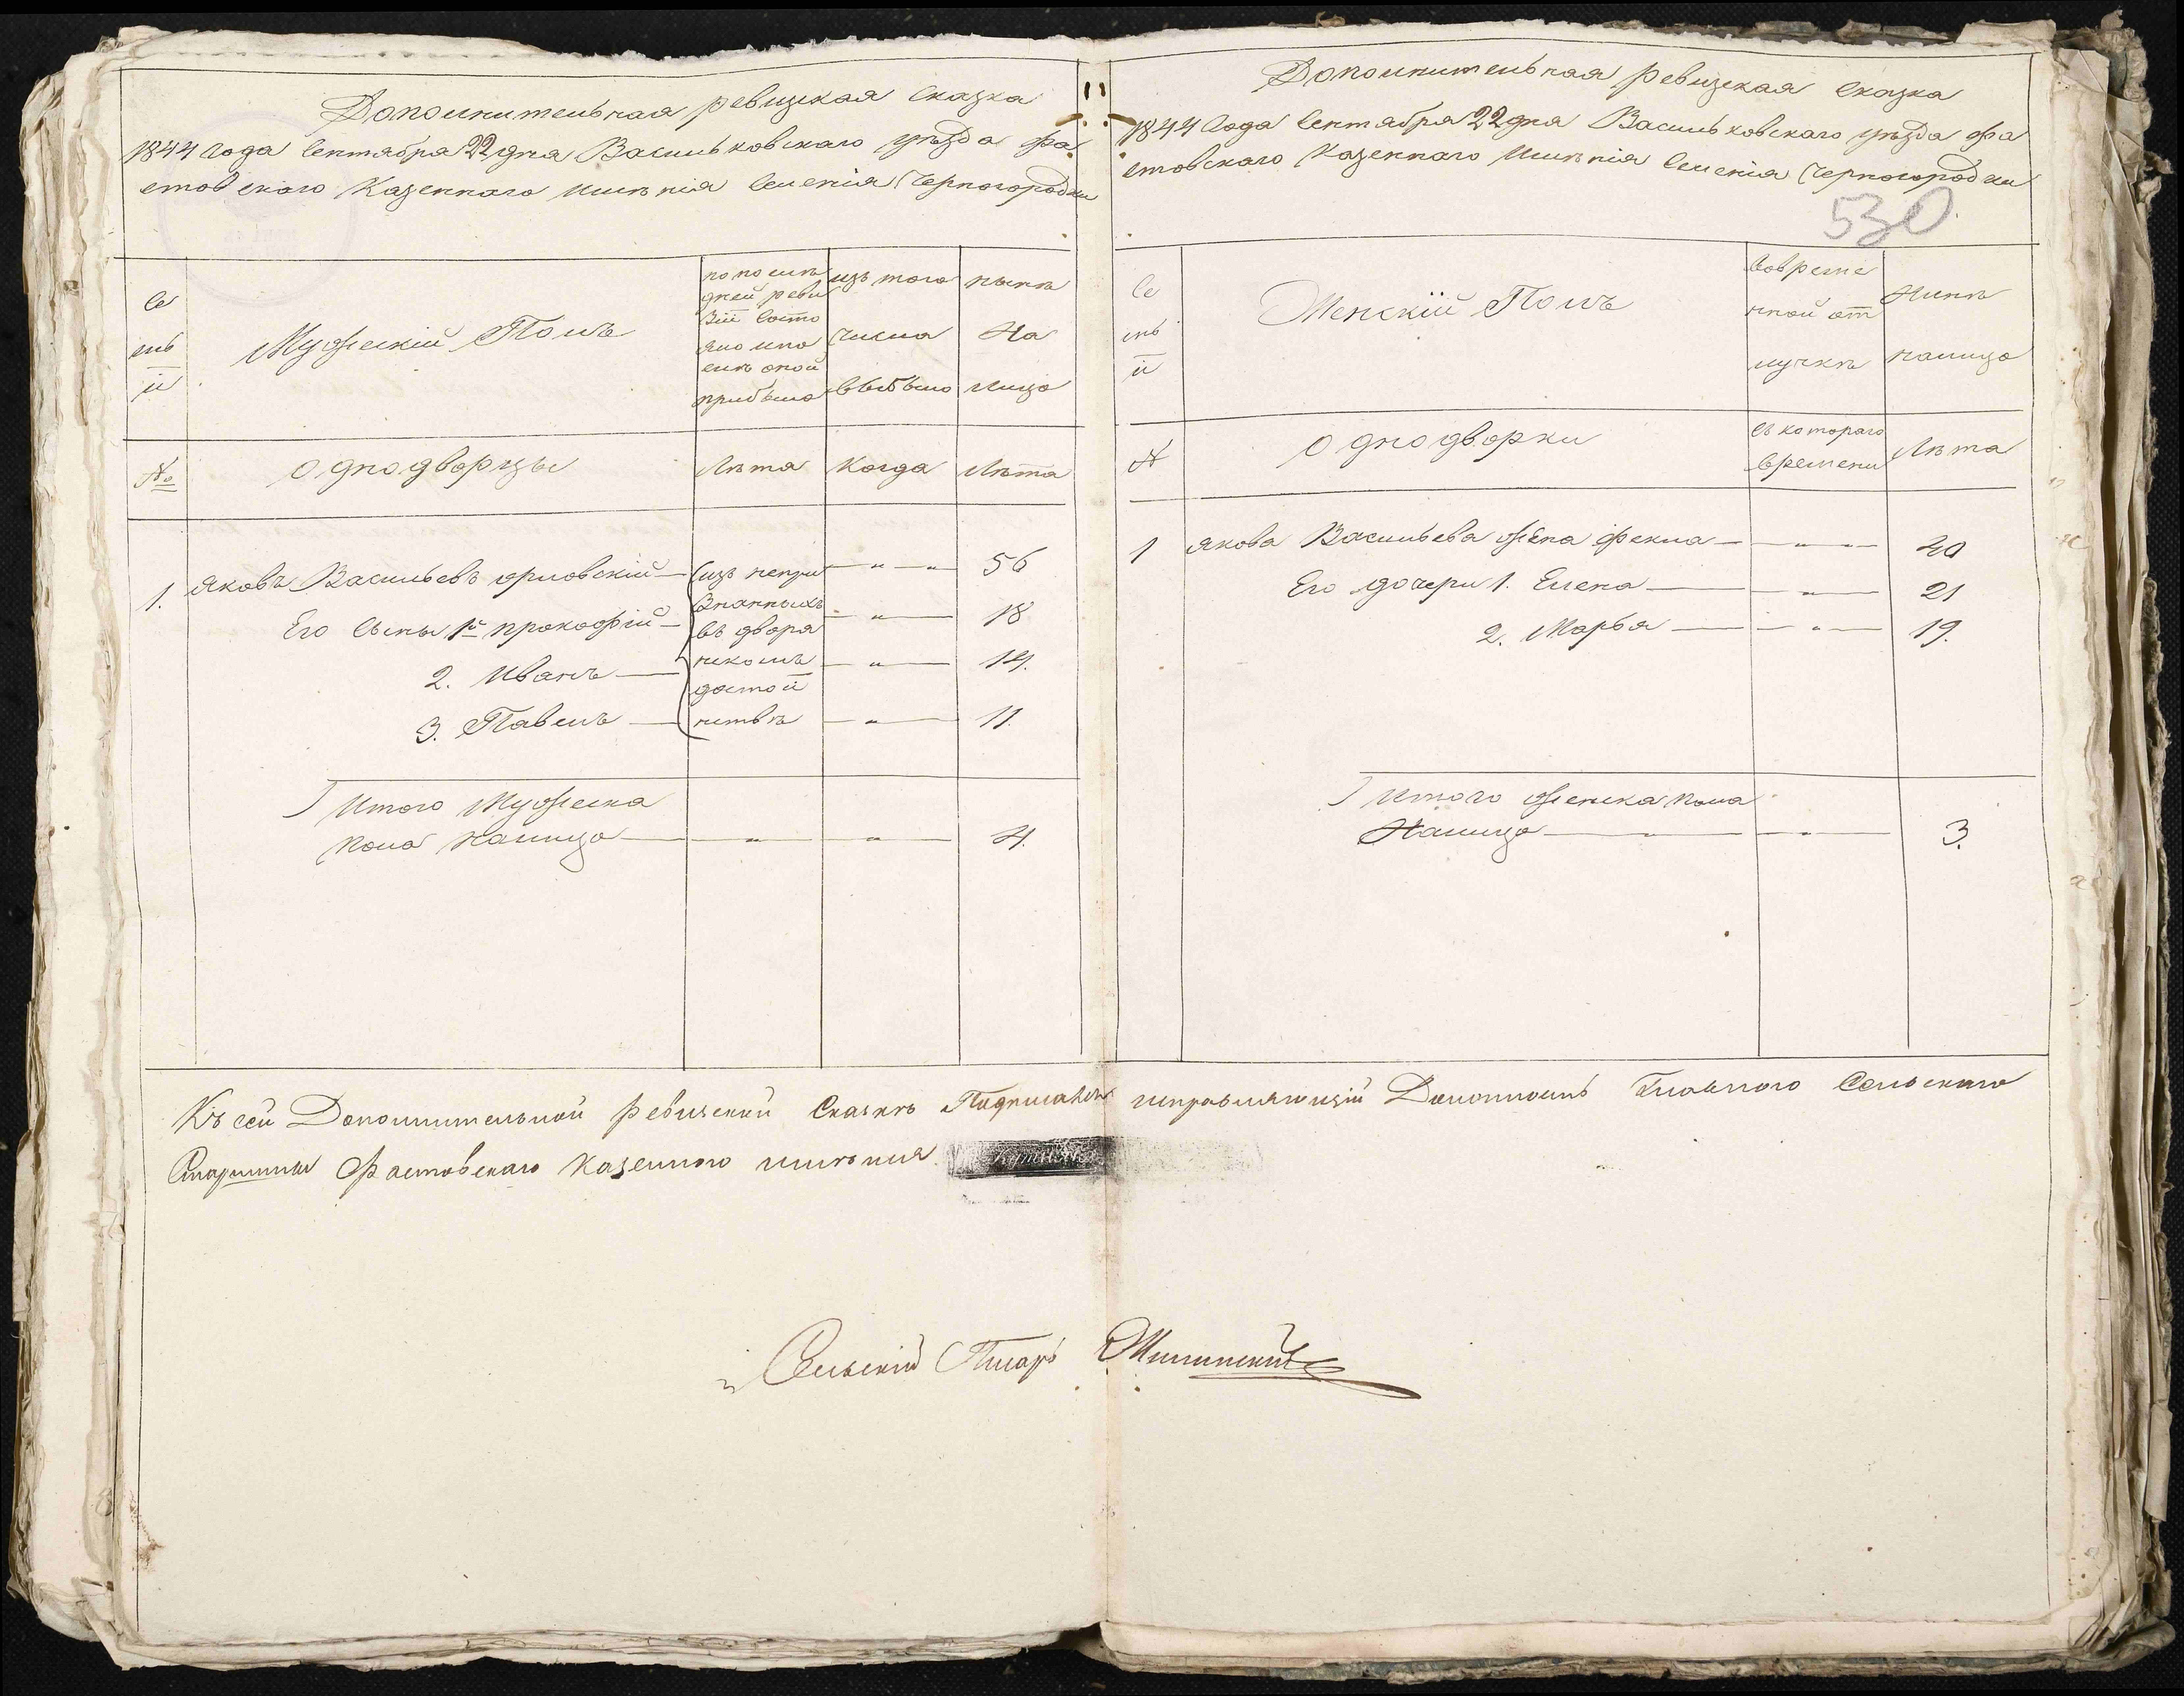 Дополнительная ревизкая сказка
1844 года Сентября 22 дня Васильковского уѣзда Фа
стовского Казенного имѣнія селенія Черногородки
Се
мь
и
Мужескій Полъ
по послѣ
дней реви
зіи состо
яло и по
слѣ оной
прибыло
изъ того
числа
выбыло
нынѣ
На
лицо
№
однодворцы
Лѣта
Когда
Лѣта
1. Яковъ Васильевъ орловскій — из непри — „ — „ 56
Его сыны 1й прокофій — знанныхъ въ дворя — „ — 18
2. Иванъ — нскомъ — „ — 14.
3. Павелъ — достоинствѣ — „ — 11.
Итого Мужеска
пола налицо — „ — „ — 4.
Дополнительная ревизская сказка
1844 года Сентября 22 дня Васильковскаго уѣзда Фа
стовскаго Казеннаго имѣнія селенія Черногородки
530
Се
мь
и
Женскій Полъ
во време
нной от
лучкѣ
Нинѣ
налицо
№
однодворки
съ котораго
времени
Лѣта
1 Якова Васильева жена фекла — „ — 40
Его дочери 1. Елена — „ — 21
2. Марья — „ — 19.
Итого женска пола
Налицо — „ — „ — 3.
Къ сей Дополнительной ревизской Сказкѣ исправляющій Должность Главного Сельскаго
Старшины Фастовскаго Казенного имѣния
Сельскій Писарь